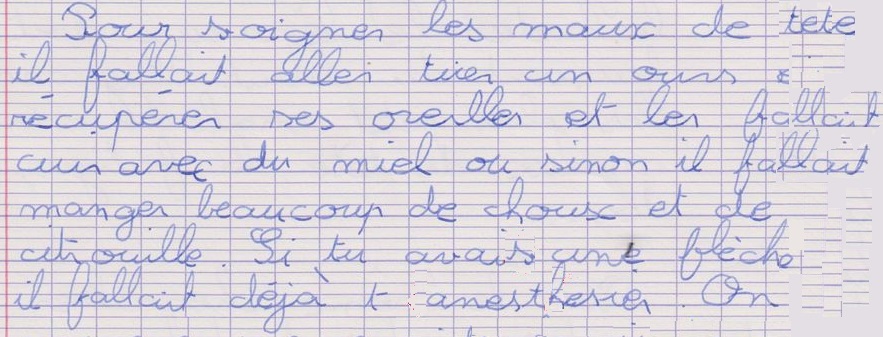 Pour soigner les maux de tete
il fallait aller tuer un ours
récupérer ses oreilles et les fallait
cuir avec du miel ou sinon il fallait
manger beaucoup de choux et de
citrouille. Si tu avais une flèche
il fallait déjà t anesthesier. On